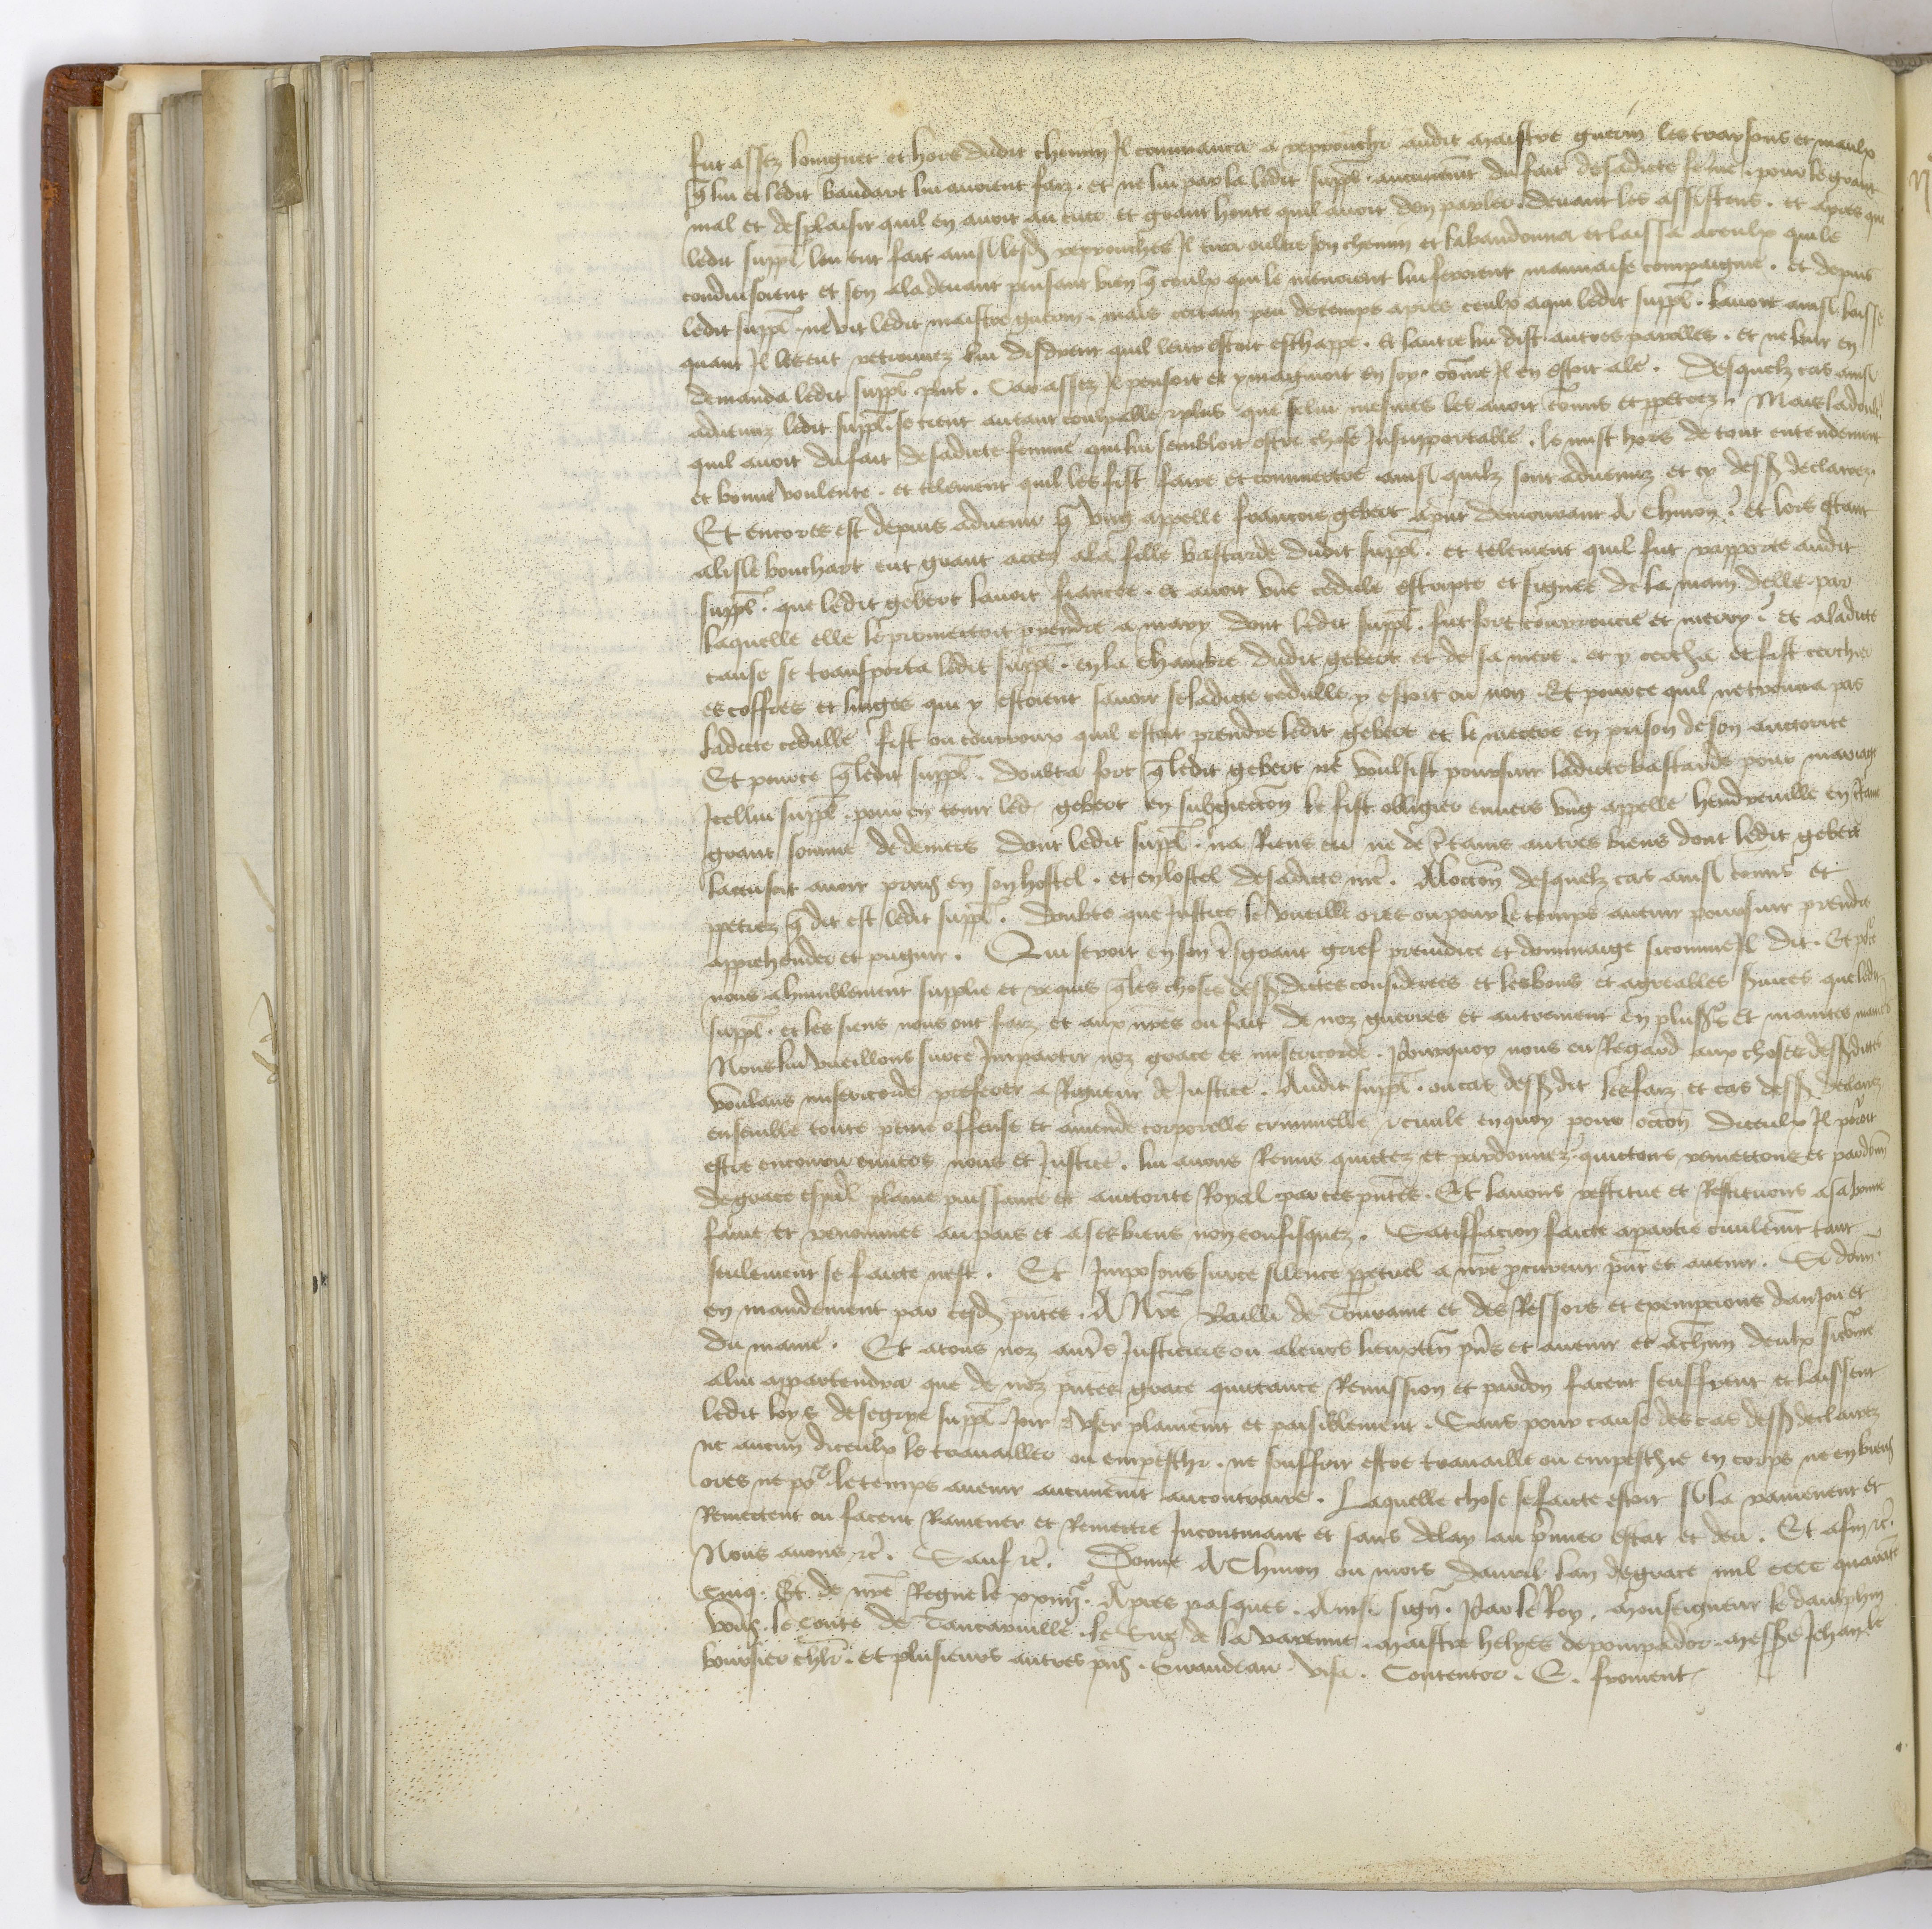 fut assez longnet et hors dudit chemin Il commanca a reproucher audit maistre guerin les traysons et maulx
q̃ lui et ledit baudart lui avoient faiz . et ne lui parla ledit suppl̃ . aucunemẽt du fait de sadicte fẽme . pour le grant
mal et desplaisir quil en avoit au cuer et grant honte quil avoit den parler devant les assistens . et apres que
ledit suppl̃ lui eut fait ainsi lesd reprouches Il tira oultre son chemin et labandonna et laissa a ceulx qui le
conduisoient et sen ala devant pensant bien q̃ ceulx qui le menoient lui feroient mauvaise compaignie . et depuis
ledit suppl̃ ne vit ledit maistre guerin . mais certain peu de temps apres ceulx a qui ledit suppl̃ . lavoit ainsi laisse
quant Il les eut retrouvez lui disdrent quil leur estoit eschappe . et lautre lui dist autres parolles . et ne leur en
demanda ledit suppl̃ plus . Car assez Il pensoit et ymaginoit en soy . cõme Il en estoit ale . Desquelz cas ainsi
advenuz ledit suppl̃ se tient autant coulpable & plus que se lui mesmes les avoit cõmis et ppetrez . Mais la doul
quil avoit du fait de sadicte femme qui lui sembloit estre chose Insupportable . le mist hors de tout entendement
et bonne voulente . et telement quil les fist faire et commectre ainsi quilz sont advenuz et cy dess declairez .
Et encores est depuis advenu q̃ ung appelle francois gebert a pñt demourant A Chinon . et lors estant
a lisle bouchart eut grant accez a la fille bastarde dudit suppl̃ . et telement quil fut rapporte audit
suppl̃ . que ledit gebert lavoit fiancee . et avoit une cedule escripte et signee de la main delle par
laquelle elle le promectoit prendre a mary dont ledit suppl̃ . fut fort courroucie et merry . et a ladicte
cause se transporta ledit suppl̃ . en la chambre dudit gebert et de sa mere . et y cercha et fist cerchier
es coffres et linges qui y estoient savoir se ladicte cedulle y estoit ou non Et pource quil ne trouva pas
ladicte cedulle fist ou courroux quil estoit prendre ledit gebert et le mectre en prison de son auctorite
Et pource q̃ ledit suppl̃ . doubta fort q̃ ledit gebert ne voulsist poursuir ladicte bastarde pour mariage
Icellui suppl̃ . pour en tenir led gebert en subgection le fist obligier envers ung appelle hendreville en c̃taine
grant somme de deniers dont ledit suppl̃ . na Riens eu ne de c̃tains autres biens dont ledit gebert
laccusoit avoir prins en son hostel . et en lostel de sadicte mẽ . A loccõn desquelz cas ainsi cõmis et
ppetrez q̃ dit est ledit suppl̃ . doubte que Justice le vueille ores ou pour le temps avenir poursuir prendre
apprehender et pugnir . Qui seroit en son tres grant grief preiudice et dommaige sicomme Il dit . Et pour ce
nous a humblement supplie et requis q̃ les choses dess dictes considerees et les bons et agreables svices que ledit
suppl̃ . et les siens nous ont faiz et aux nr̃es ou fait de noz guerres et autrement en pluss et maintes manieres
Nous lui vueillons sur ce Impartir noz grace et misericorde . Pourquoy nous eu Regard aux choses dess dictes
voulans misericorde preferer a Rigueur de Justice . Audit suppl̃ . ou cas dess dit les faiz et cas dess declairez
ensemble toute peine offense et amende corporelle criminelle & civile en quoy pour occõn diceulx Il pourroit
estre encouru envers nous et Justice . lui avons Remis quictez et pardonnez quictons remectons et pardonñ
de grace espãl plaine puissance et auctorite Royal par ces pñtes . Et lavons restitue et Restituons a sa bonne
fame et renommee au pais et a ses biens non confisquez . Satiffacion faicte a partie civilemẽt tant
seulement se faicte nest . Et Imposons sur ce silence ppetuel a nr̃e procureur pñt et avenir . Si donñ
en mandement par cesd pñtes . A Nr̃e Bailli de Touraine et des Ressors et exempcions danjou et
du maine . Et a tous noz autr̃s Justiciers ou a leurs lieuxten pñs et avenir et a chũn deulx sicõme
a lui appartendra que de noz pñtes grace quictance Remission et pardon facent seuffrent et laissent
ledit loys de segrye suppl̃ . Joir & user plainemẽt et paisiblement . Sans pour cause des cas dess declairez
ne aucun diceulx le travailler ou empescher . ne souffrir estre travaille ou empeschie en corps ne en biens
ores ne pour le temps avenir aucunemẽt au contraire . Laquelle chose se faicte estoit silz la ramenent et
Remectent ou facent Ramener et Remectre Incontinant et sans delay au premier estat et deu . Et afin &c̃ .
Nous avons &c̃ . Sauf &c̃ . Donne A Chinon ou mois davril lan de grace mil cccc quarate
cinq . Et de nr̃e Regne le xxiiiᵉ . Apres pasques . Ainsi signẽ . Par le Roy , monseigneur le daulphin
vous . le conte de Tancarville . le sire de la varenne . maistre helyes de pompador . messire Jehan le
boursier chlr̃ . et plusieurs autres pñs . Giraudeau . Visa . Contentor . E . froment